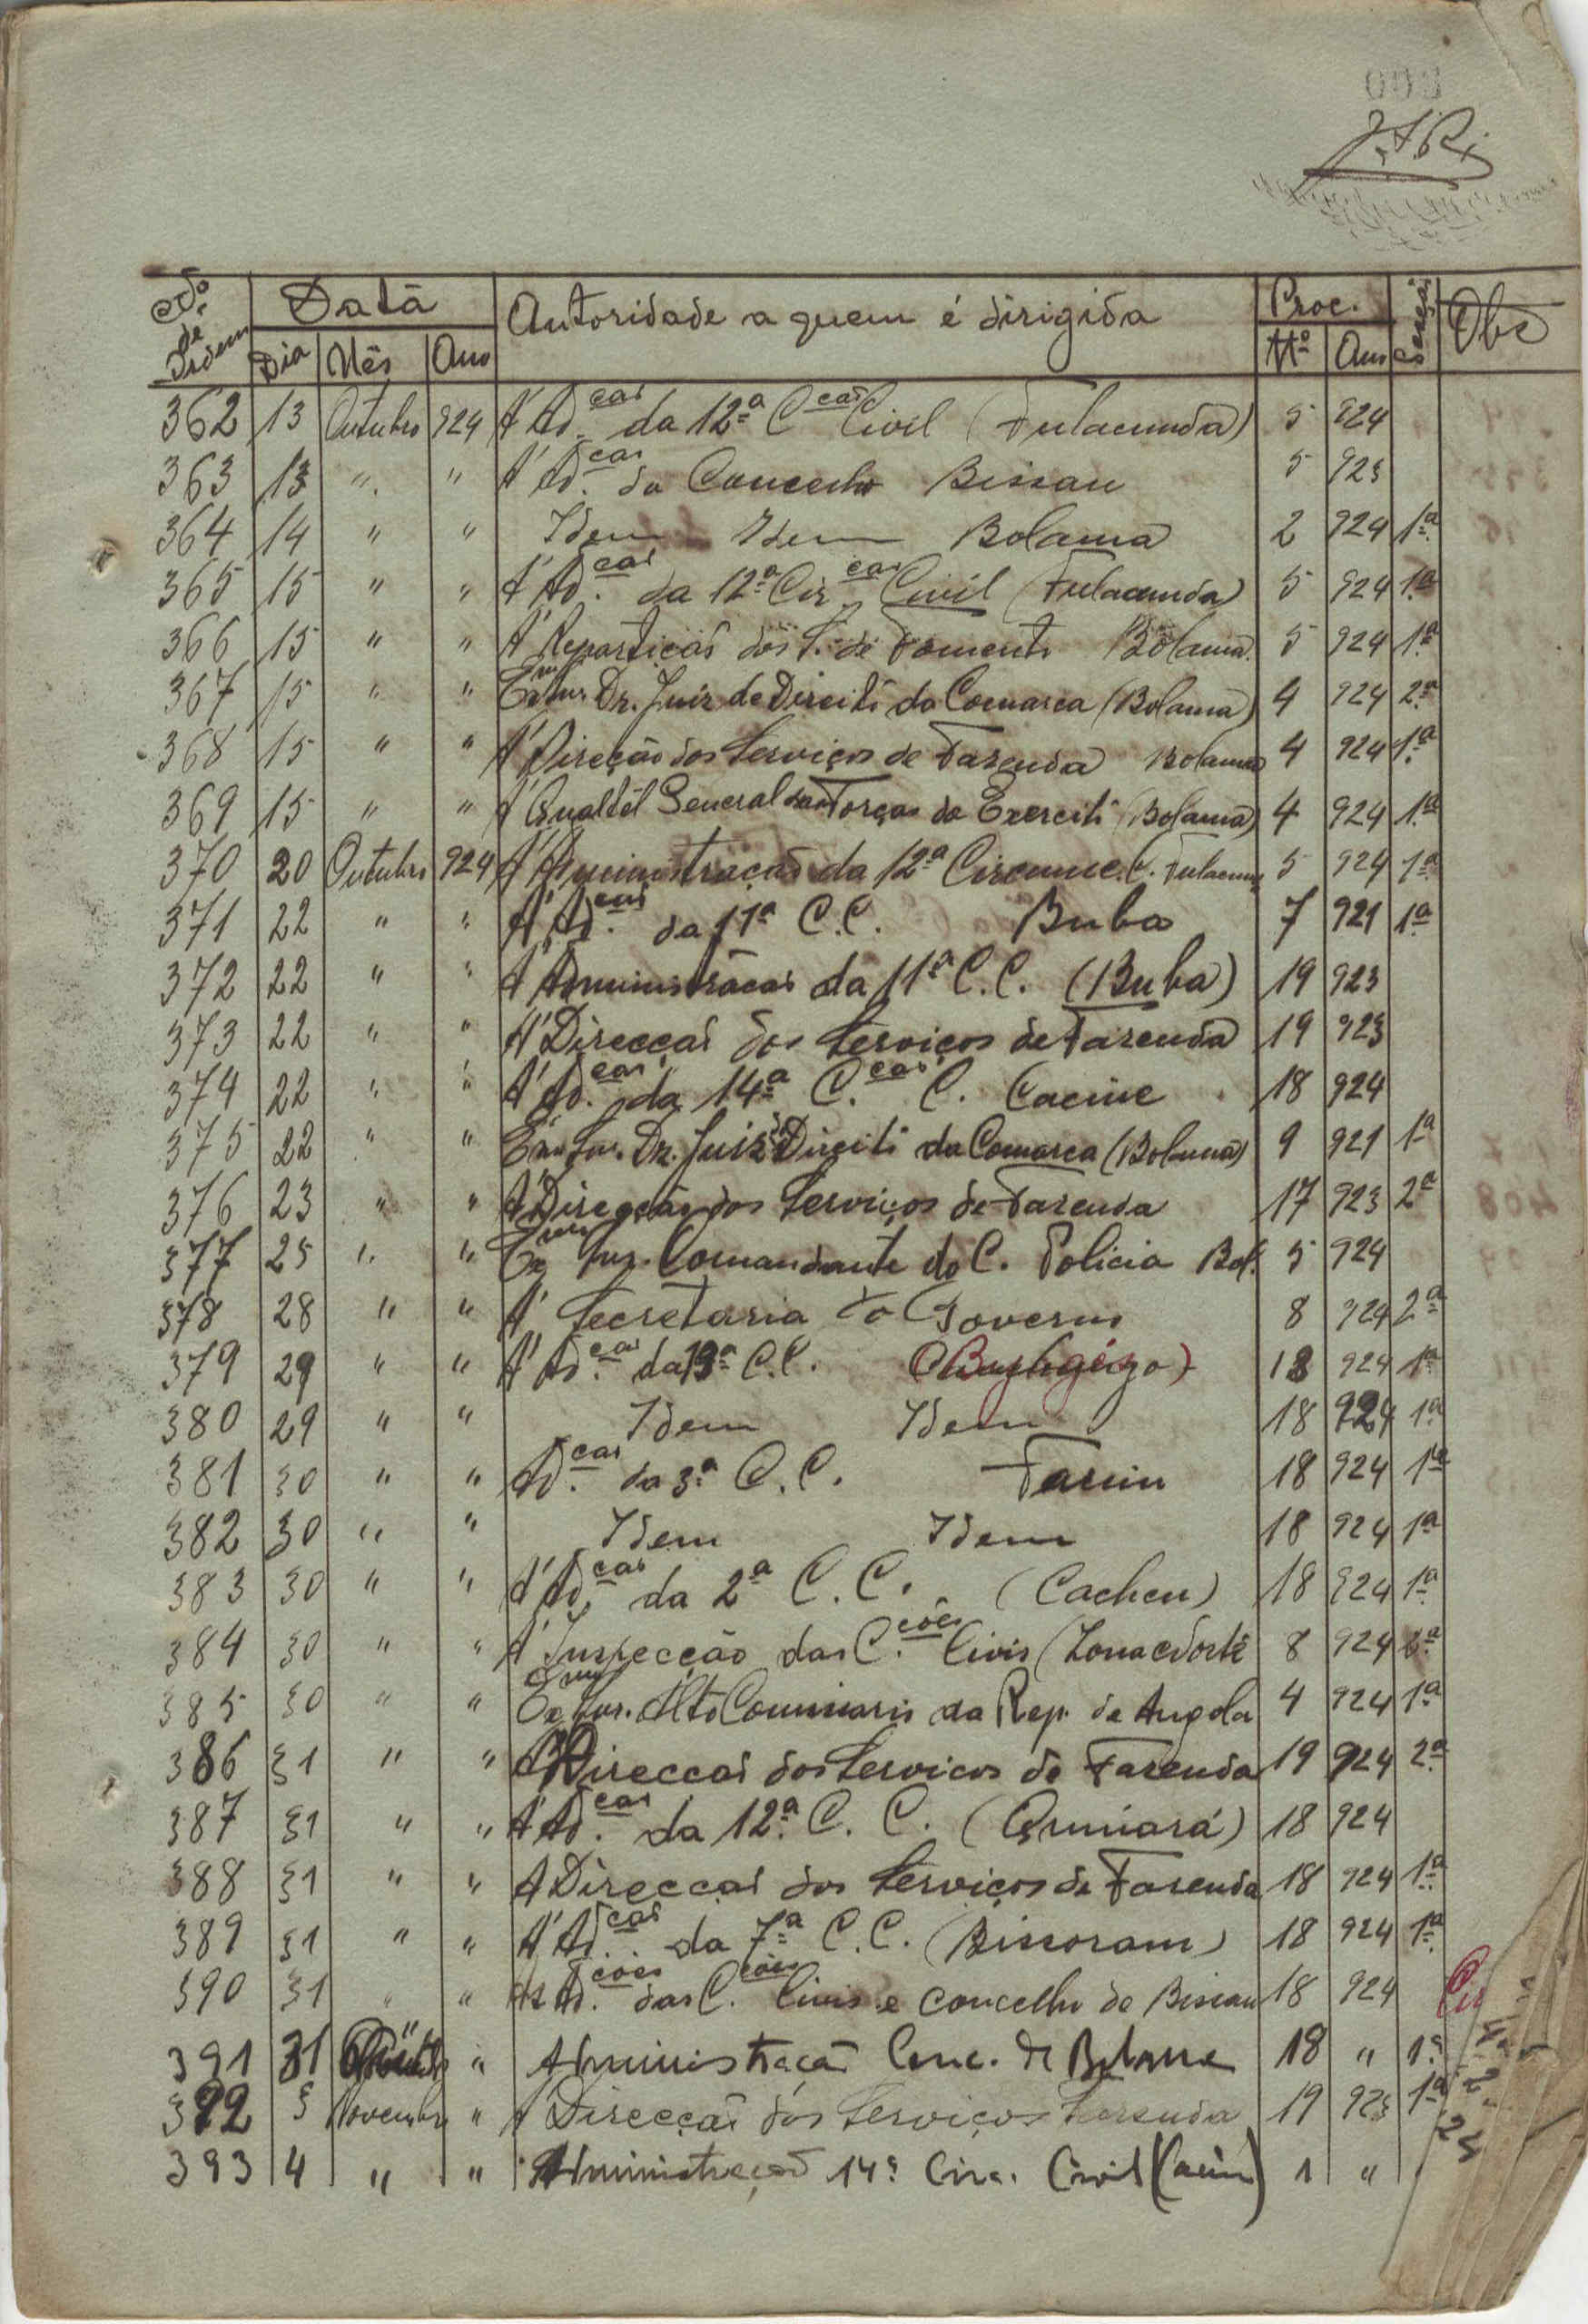 Nº de Ordem | Data | Autoridade a quem é dirigida | Proc. | Secção | Obs
Dia | Mês | Ano | Nº | Ano
362 13 Outubro 924 A' Ad.ção da 12ª C.ção Civil (Fulacunda) 5 924
363 13 " " A' Ad.ção do Concelho Bissau 5 923
364 14 " " Idem Idem Bolama 2 924 1ª
365 15 " " A' Ad.ção da 12ª Cir.ção Civil (Fulacunda) 5 924 1ª
366 15 " " A' Repartição dos S. de Fomento Bolama 5 924 1ª
367 15 " " Exmo Snr. Dr. Juiz de Direito da Comarca (Bolama) 4 924 2ª
368 15 " " A' Direção dos Serviços de Fazenda Bolama 4 924 1ª
369 15 " " A' Qualtél General das Forças do Exercito (Bolama) 4 924 1ª
370 20 Outubro 924 A' Administração da 12ª Circunsc. C. Fulacun 5 924 1ª
371 22 " " A' Ad.ção da 11ª C.C. Buba 7 921 1ª
372 22 " " A' Administração da 11ª C.C. (Buba) 19 923
373 22 " " A' Direcção dos Serviços de Fazenda 19 923
374 22 " " A' Ad.ção da 14ª C.ção C. Cacine 18 924
375 22 " " Exmo Snr. Dr. Juiz de Direito da Comarca (Bolama) 9 921 1ª
376 23 " " A' Direcção dos Serviços de Fazenda 17 923 2ª
377 25 " " Exmo Snr. Comandante do C. Policia Bol. 5 924
378 28 " " A' Secretaria do Governo 8 924 2ª
379 29 " " A' Ad.ção da 13ª C.C. 18 924 1ª
380 29 " " Idem Idem 18 924 1ª
381 30 " " Ad.ção da 3ª C.C. Farim 18 924 1ª
382 30 " " Idem Idem 18 924 1ª
383 30 " " A' Ad.ção da 2ª C.C. (Cacheu) 18 924 1ª
384 30 " " A' Inspecção das C.ções Civis (Zona Norte 8 924 2ª
385 30 " " Exmo Snr. Alto Comissario da Rep. de Angola 4 924 1ª
386 31 " " A' Direcção dos Serviços de Fazenda 19 924 2ª
387 31 " " A' Ad.ção da 12ª C. C. (Quinará) 18 924
388 31 " " A Direcção dos Serviços de Fazenda 18 924 1ª
389 31 " " A' Ad.ção da 7ª C.C. (Bissoram) 18 924 1ª
390 31 " " As Ad.ções das C.ções Civis e concelho de Bissau 18 924
391 31 " Administração Conc. de Bolama 18 " 1ª
392 3 Novembro " A' Direcção dos Serviços Fazenda 19 923 1ª
393 4 " " Administração 14ª Circ. Civil (Cacine) 1 "